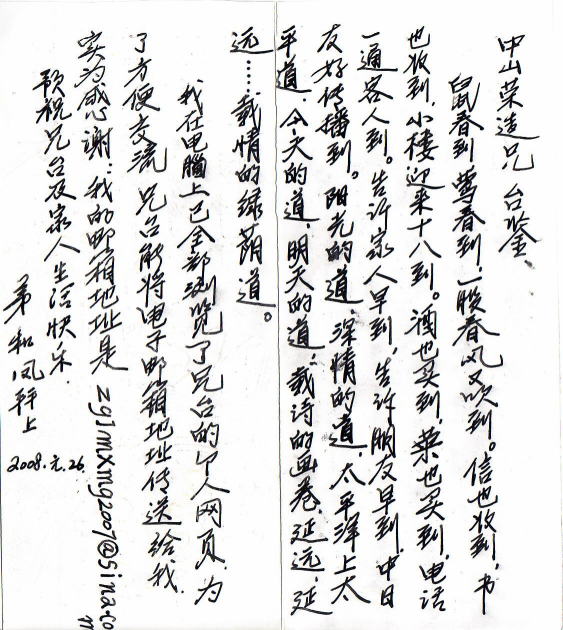 中山荣造兄 台鉴、
鼠春到、莺春到、一股春风又吹到。信也收到、书
也收到、小楼迎来十八到。酒也买到、菜也买到、电话
一通客人到。告诉家人早到、告诉朋友早到、中日
友好传播到。阳光的道、深情的道、太平洋上太
平道、今天的道、明天的道；载诗的画卷、延远、延
远……载情的绿荫道。
我在电脑上已全部浏览了兄台的个人网页、为
了方便交流、兄台能将电子邮箱地址传送给我、
实为感谢：我的邮箱地址是 zglmxmg2007@sina.co
m
预祝兄台及家人生活快乐.
弟 和 凤 轩 上
2008.元.26.